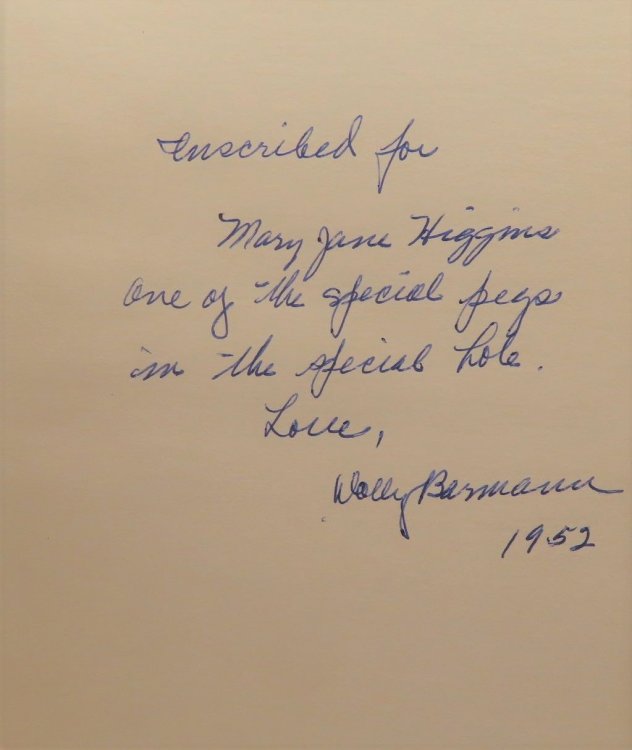 Inscribed for
Mary Jane Higgins
One of the special pegs
in the special hole.
Love,
Wally Barmann
1952